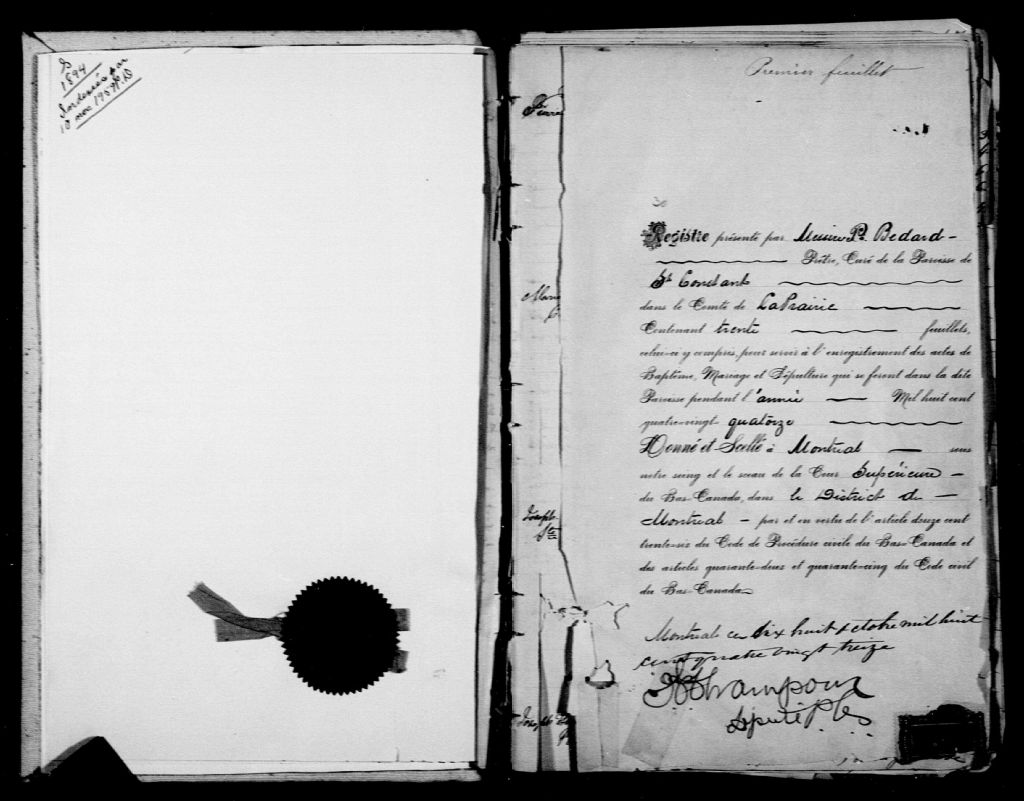 1894
10 nov 1959
Premier feuillet
Registre présenté par Messire Pd. Bedard
Prêtre, Curé de la Paroisse de
St Constant
dans le Comté de LaPrairie
Contenant trente feuillets,
celui-ci y compris, pour servir à l'enregistrement des actes de
Baptême, Mariage et Sépulture qui se feront dans la dite
Paroisse pendant l'année Mil huit cent
quatre-vingt quatorze
Donné et Scellé à Montreal sous
notre seing et le sceau de la Cour Supérieure
du Bas-Canada, dans le District de
Montreal - par et en vertu de l'article douze cent
trente-six du Code de Procédure civile du Bas-Canada et
des articles quarante-deux et quarante-cinq du Code civil
du Bas-Canada
Montreal ce dix huit octobre mil huit
cent quatre vingt treize
Député P.
Pierre
Joseph